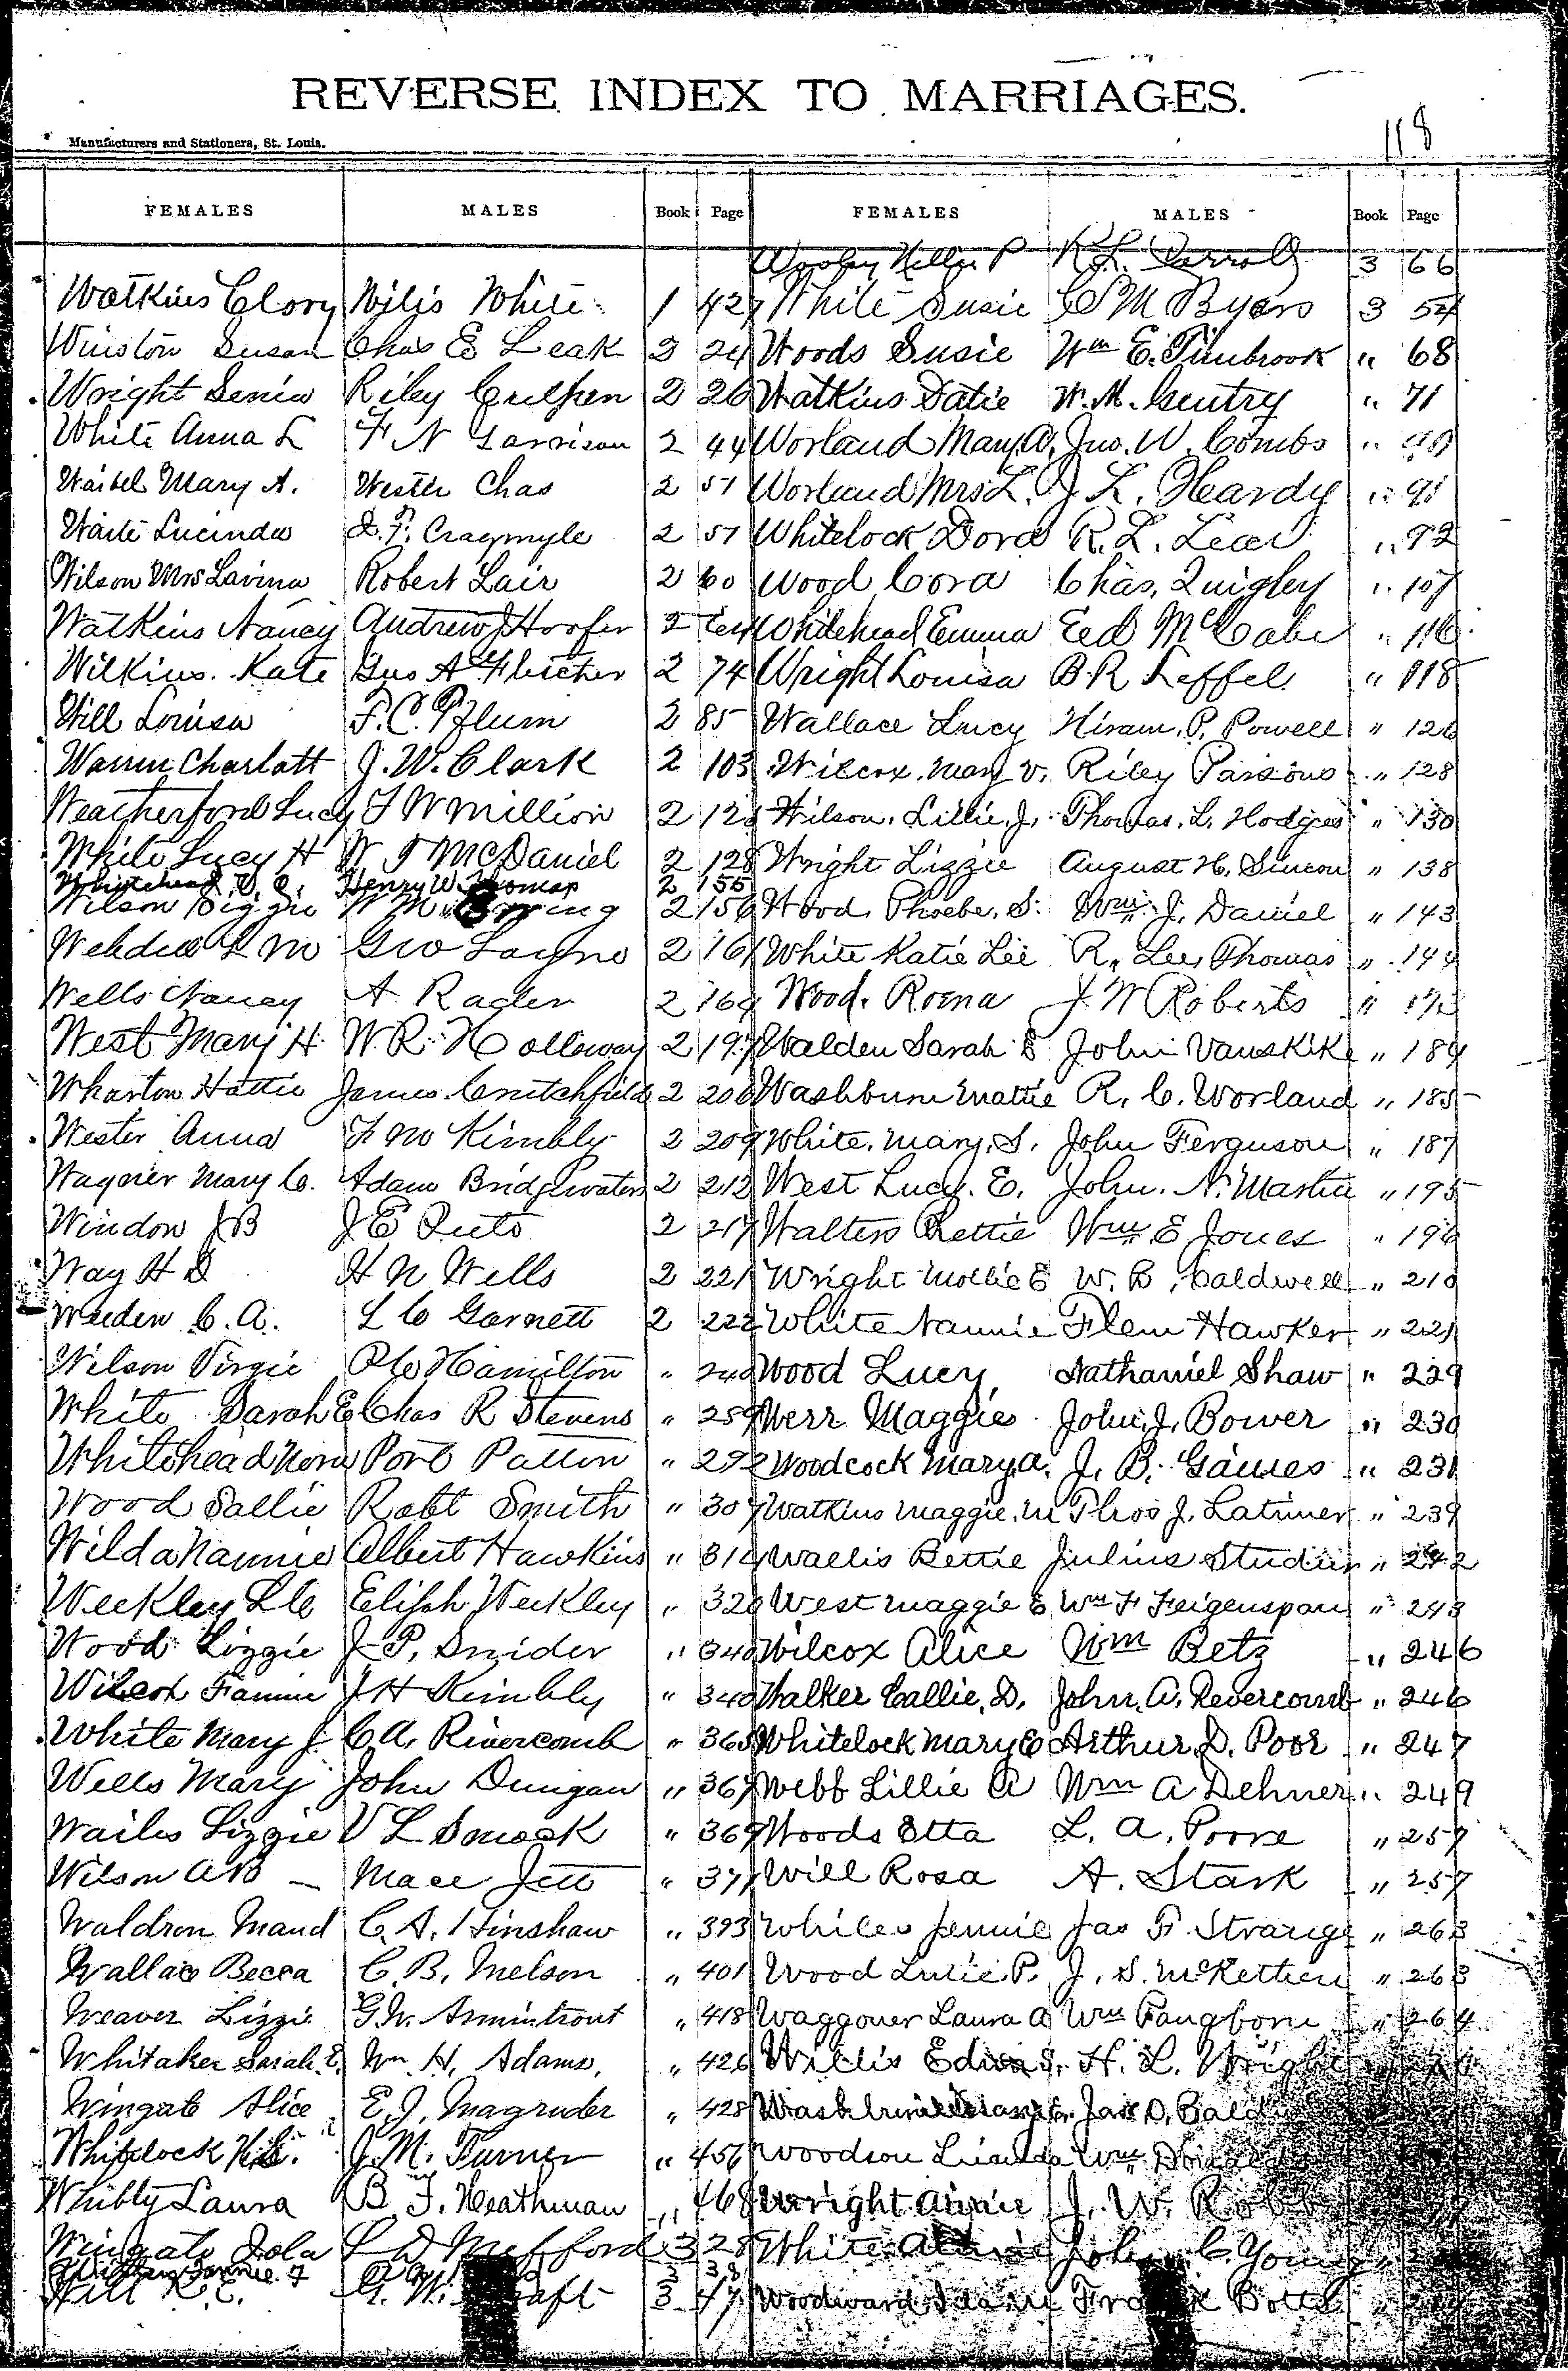 REVERSE INDEX TO MARRIAGES.
118
Manufacturers and Stationers, St. Louis.
FEMALES MALES Book Page FEMALES MALES Book Page
3 66
Watkins Clory Wilis White 1 427 White Susie C S M Byars 3 54
Winston Susan Chas E Leak 2 24 Woods Susie Wm E. Timbrook " 68
Wright Senia Riley 2 26 Watkins Datie W. M. Gentry " 71
White Anna L F N Garrison 2 44 Worland Mary A. Jno. W. Combs "
Waibel Mary A. Wester Chas 2 51 Worland Mrs L. J. L. Heardy " 91
Waite Lucinda D. F. Cragmyle 2 57 Whitelock Dora R. L. Lear " 92
Wilson Mrs Lavina Robert Lair 2 60 Wood Cora Chas. Quigley " 107
Watkins Nancy Andrew J Hoofer 2 Whitehead Emma Eed McCabe " 116
Wilkins. Kate Gus A Fluscher 2 74 Wright Louisa B. R Leffel " 118
Will Louisa F. C. Pflum 2 85 Wallace Lucy Hiram. P. Powell " 126
Warren Charlatt J. W. Clark 2 103 Wilcox. Mary V. Riley Parsons " 128
Weatherford Lucy F W Million 2 Wilson. Lillie. J. Thomas. L. Hodges " 130
White Lucy H W J McDaniel 2 128 Wright Lizzie August H. Simon " 138
Whitehead Henry W. Thomas 2 155
Wilson Biggie W M 2 156 Wood. Phoebe. S. Wm. J. Daniel " 143
Geo Layne 2 161 White Katie Lee R. Lee Thomas " 144
Wells Nancy A Rader 2 164 Wood. Roena J. W Roberts "
West Mary H. W. R. Holloway 2 197 Walden Sarah E John Vanskike " 184
Wharton Hattie James Crutchfield 2 206 Washburn Mattie R. C. Worland " 185
Wester Anna F. M Kimbly 2 209 White. Mary. S. John Ferguson " 187
Wagner Mary C. Adam Bridgewaters 2 212 West Lucy. E. John. N. Martin " 195
Windon J B J E Suto 2 217 Walters Rettie Wm E Jones " 196
Way H D H N Wells 2 221 Wright Mollie E W. B. Caldwell " 210
Weeden C. A. L C Garnett 2 222 White Nannie Flem Hawker " 221
Wilson Virgie Hamilton " 240 Wood Lucy Nathaniel Shaw " 229
White Sarah E Chas R Stevens " 259 Werr Maggie John J. Bower " 230
Whitehead Nora Port Patton " 292 Woodcock Mary A. J. B. Gaines " 231
Wood Sallie Robt Smith " 307 Watkins Maggie. M Thos J. Latimer " 239
Wilda Nannie Albert Hawkins " 314 Wallis Bettie Julius Studier " 242
Weekley L C Elijah Weekley " 320 West Maggie E Wm F Feigenspan " 243
Wood Lizzie J. P. Snider " 340 Wilcox Alice Wm Betz " 246
Fannie J H Kimbly " 340 Walker Callie. D. John. A. Revercomb " 246
White Mary J. C. A. Rivercomb " 365 Whitelock Mary E Arthur. D. Poor " 247
Wells Mary John Dungan " 367 Webb Lillie A Wm A Dehner " 249
Wailes Lizzie V L Smock " 369 Woods Etta L. A. Poore " 257
Wilson A B Mace Jett " 377 Will Rosa A. Stark " 257
Waldron Maud C. A. Hinshaw " 393 Whiles Jennie Jas F. Strange " 263
Wallace Becca C. B. Nelson " 401 Wood Lutie P. J. S. " 263
Weaver Lizzie G. W. Armintrout " 418 Waggoner Laura A Wm Pangborn " 264
Whitaker Sarah E. Wm H. Adams, " 426 Willis H. L. Wright
Wingate Alice E. J. Magruder " 428 Jas D.
Whitelock J. M. Turner " 456 Woodson Wm
Whibty Laura B. F. Heathman " 468 Wright Annie J. W.
Wingate Iola L D Mefford 3 28 White John C. Young
3 38
Will K. E. G. W. 3 47 Woodward Frank